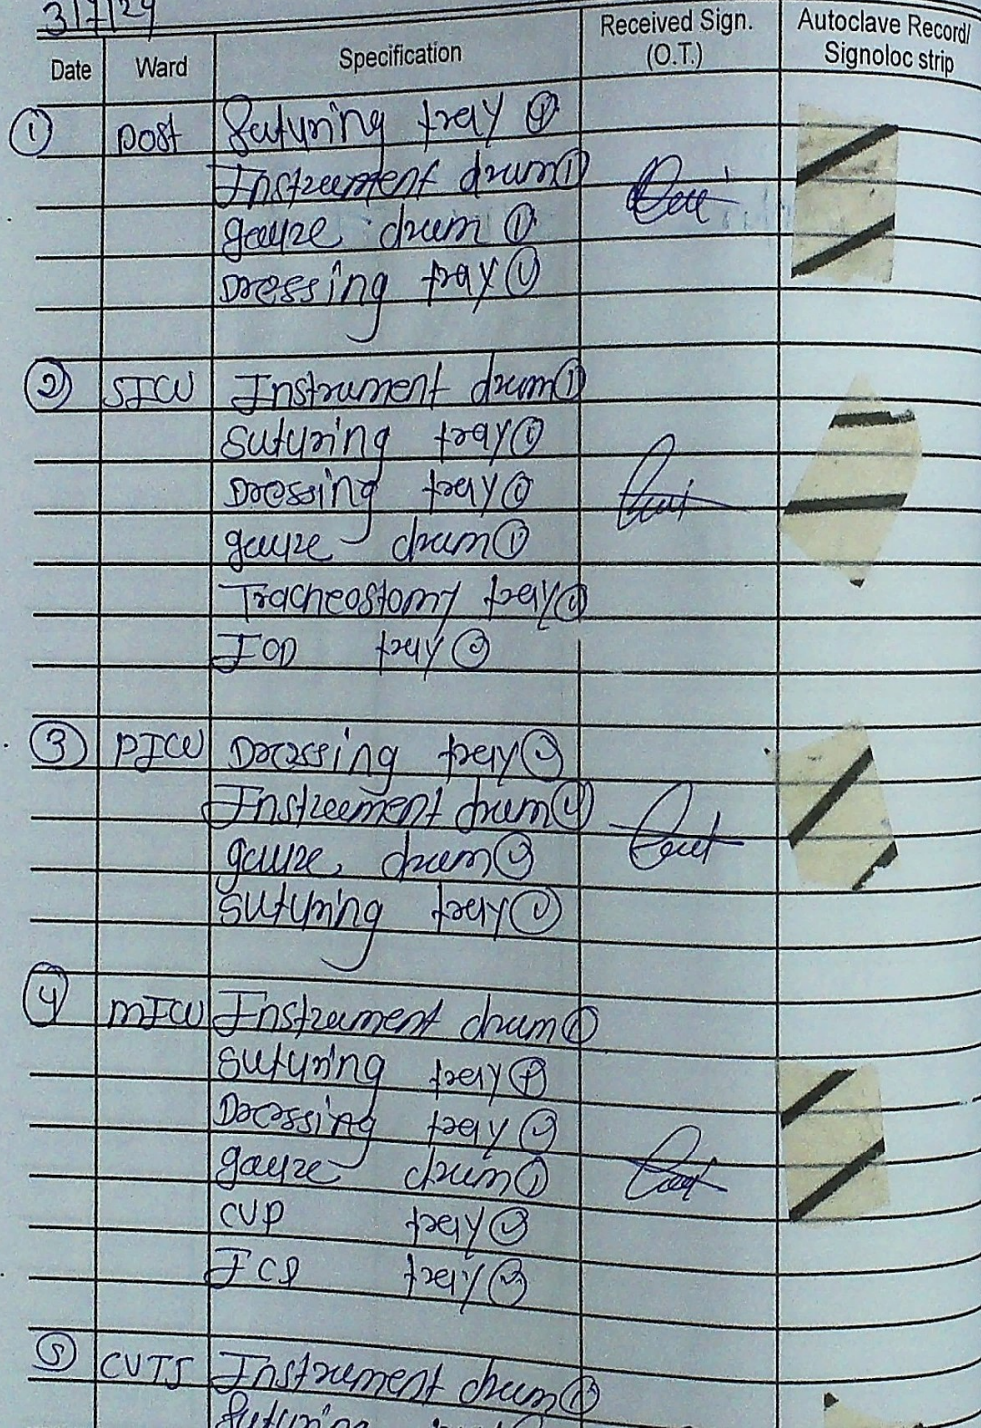 3/7/24
Date Ward Specification Received Sign. (O.T.) Autoclave Record/ Signoloc strip
① post Suturing tray
Instreement drum ①
gauze drum ①
Dressing tray ①
② SICU Instrument drum ①
Suturing tray ①
Dressing tray
gauze drum ①
Tracheostomy tray
tray
③ PICU Dressing tray
Instreement drum ④
gauze drum
Suturing tray ①
④ MICU Instrument drum ①
Suturing tray
Dressing tray
gauze drum ①
CVP tray
ICD tray
⑤ CVTS Instrument drum
Suturing